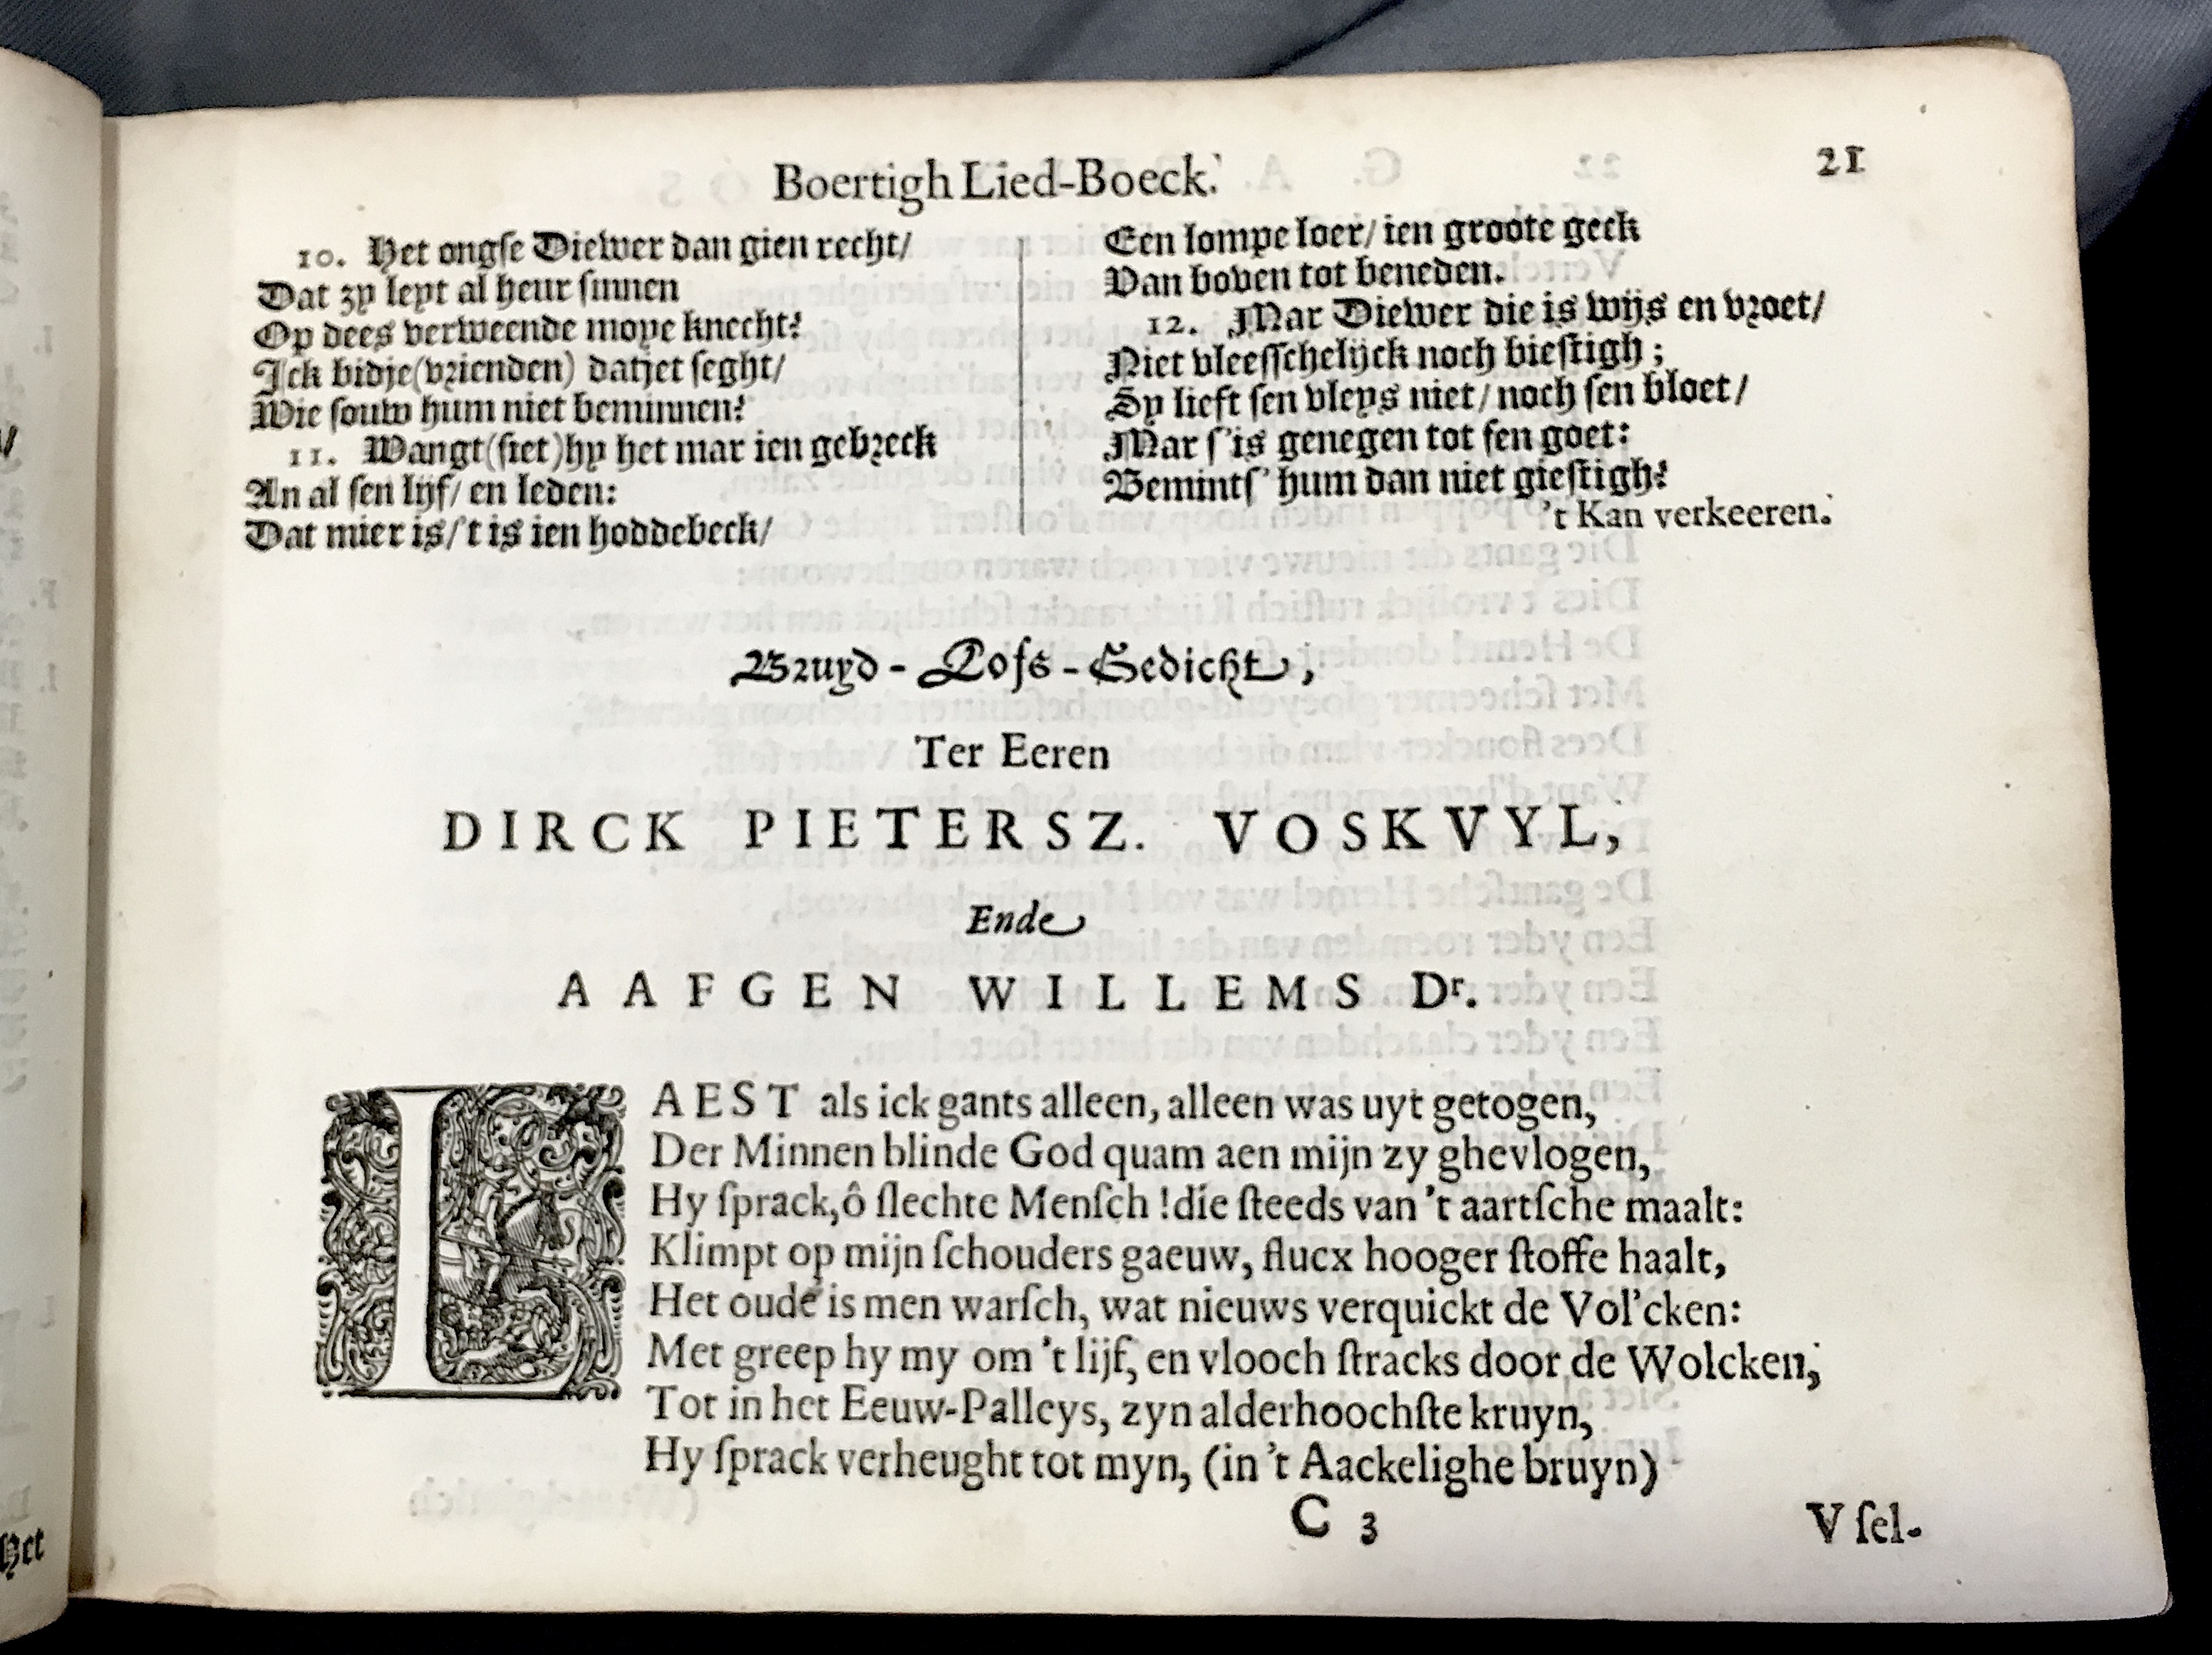 Boertigh Lied-Boeck.
21
10. Het ongſe Diewer dan gien recht/
Dat zy leyt al heur ſinnen
Op dees verweende moye knecht?
Ick bidje (vrienden) datjet ſeght/
Wie ſouw hum niet beminnen?
11. Wangt (ſiet) hy het mar ien gebreck
An al ſen lijf/ en leden:
Dat mier is/ 't is ien hoddebeck/
Een lompe loer/ ien groote geck
Van boven tot beneden.
12. Mar Diewer die is wijs en vroet/
Niet vleeſſchelijck noch bieſtigh;
Sy lieft ſen vleys niet/ noch ſen bloet/
Mar ſ'is genegen tot ſen goet:
Bemintſ' hum dan niet gieſtigh?
't Kan verkeeren.
Bruyd-Lofs-Gedicht,
Ter Eeren
DIRCK PIETERSZ. VOSKVYL,
Ende
AAFGEN WILLEMS Dr.
LAEST als ick gants alleen, alleen was uyt getogen,
Der Minnen blinde God quam aen mijn zy ghevlogen,
Hy ſprack, ô ſlechte Menſch! die ſteeds van 't aartſche maalt:
Klimpt op mijn ſchouders gaeuw, flucx hooger ſtoffe haalt,
Het oude is men warſch, wat nieuws verquickt de Vol'cken:
Met greep hy my om 't lijf, en vlooch ſtracks door de Wolcken,
Tot in het Eeuw-Palleys, zyn alderhoochſte kruyn,
Hy ſprack verheught tot myn, (in 't Aackelighe bruyn)
C 3
V ſel-
Het